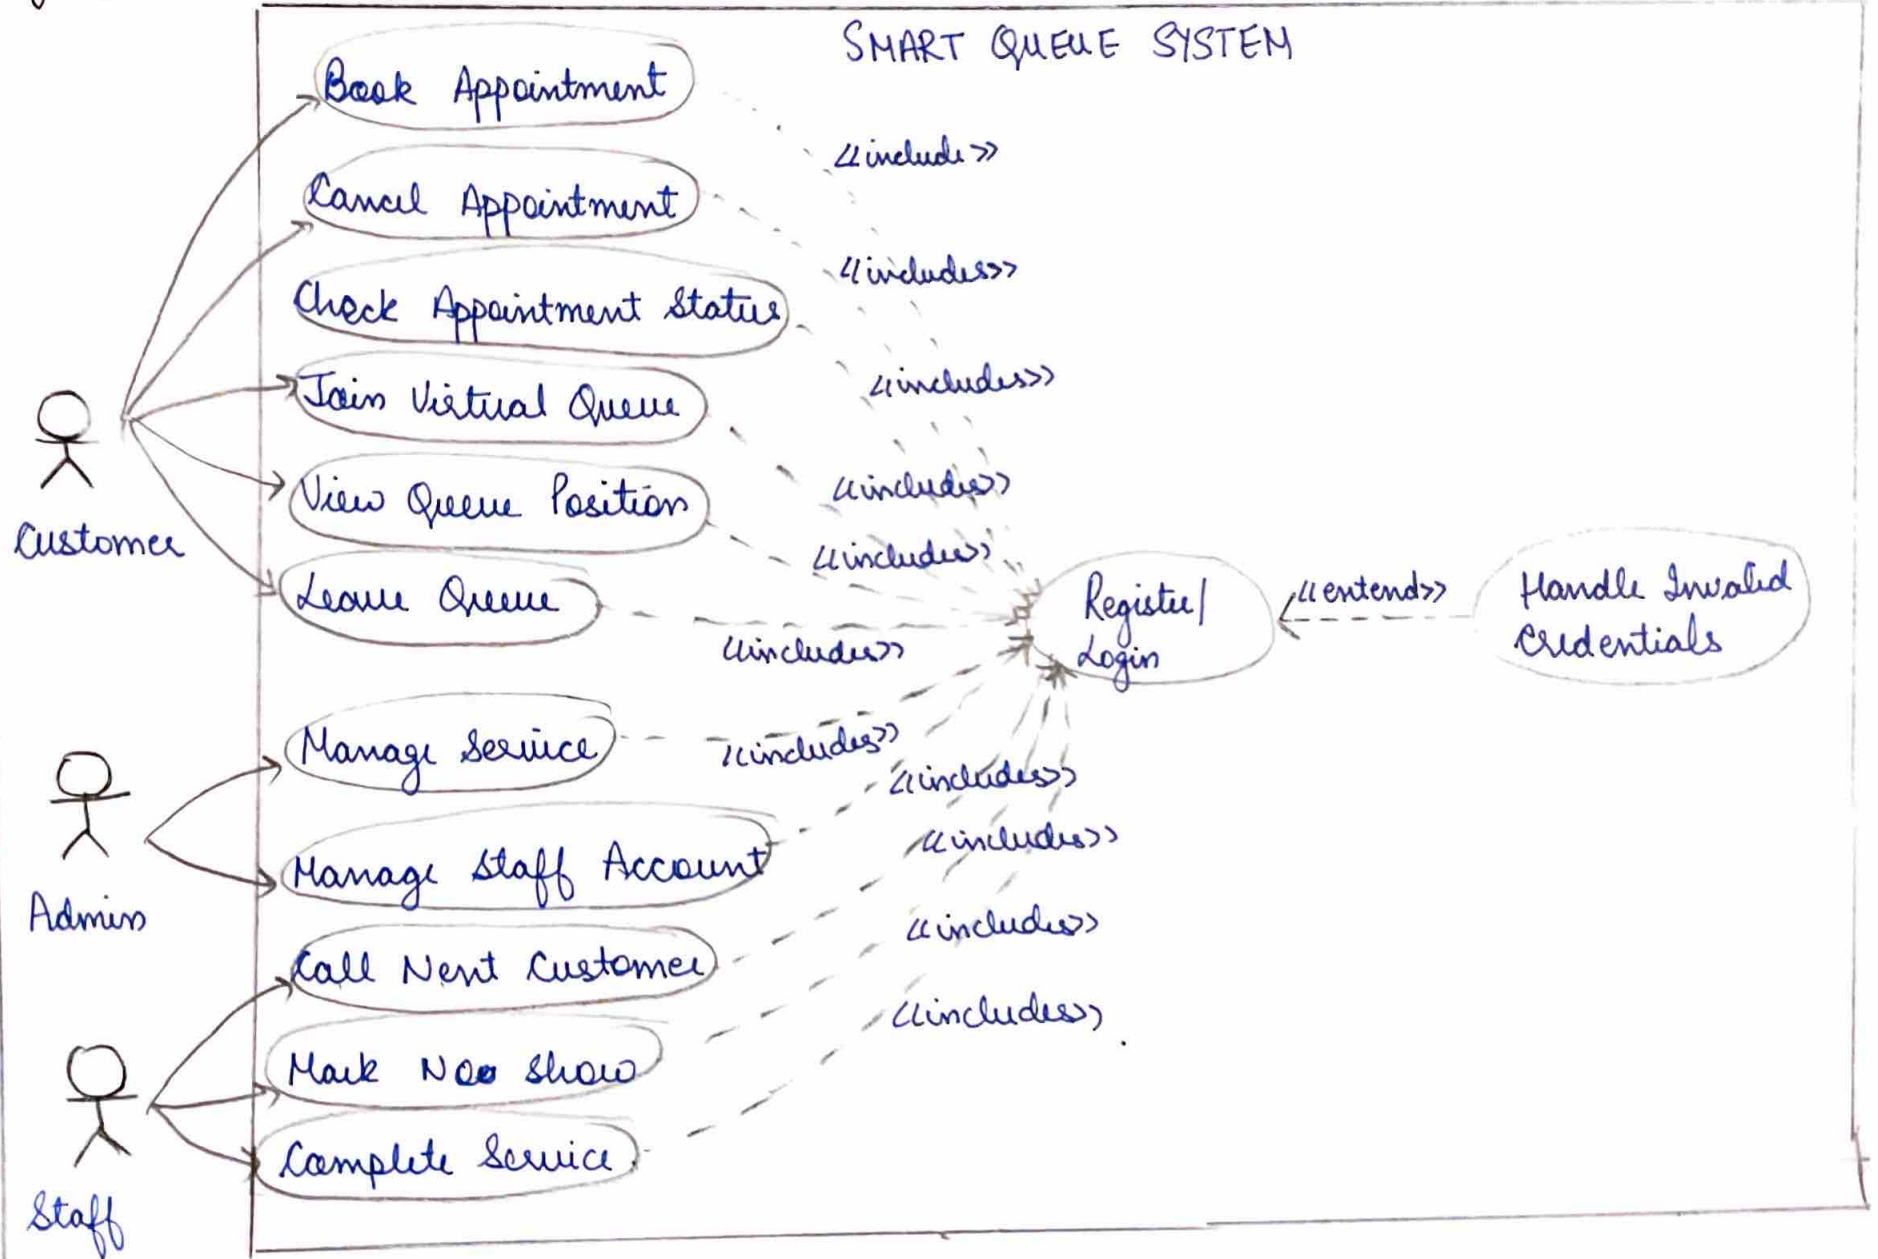 SMART QUEUE SYSTEM
Book Appointment
<<include>>
Cancel Appointment
<<includes>>
Check Appointment Status
<<includes>>
Join Virtual Queue
<<includes>>
View Queue Position
<<includes>>
Customer
Leave Queue
<<includes>>
Register/
Login
<<extend>>
Handle Invalid
Credentials
Manage Service
<<includes>>
<<includes>>
Manage Staff Account
<<includes>>
Admin
Call Next Customer
<<includes>>
Mark No Show
<<includes>>
Complete Service
Staff